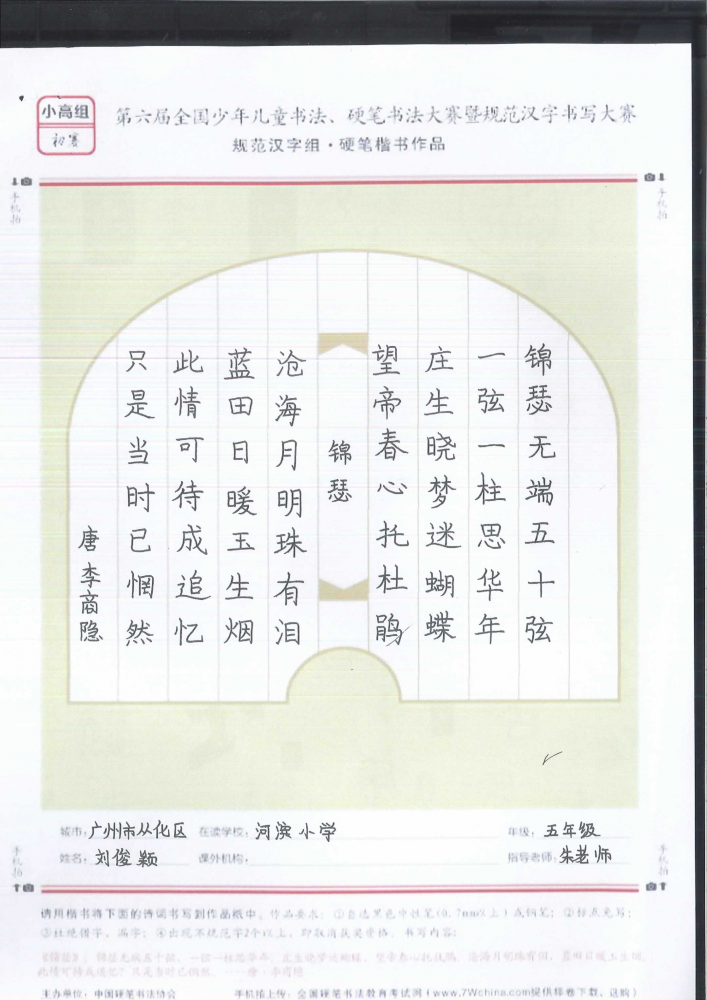 小高组
初赛
第六届全国少年儿童书法、硬笔书法大赛暨规范汉字书写大赛
规范汉字组·硬笔楷书作品
手机拍
手机拍
锦瑟无端五十弦
一弦一柱思华年
庄生晓梦迷蝴蝶
望帝春心托杜鹃
锦瑟
沧海月明珠有泪
蓝田日暖玉生烟
此情可待成追忆
只是当时已惘然
唐 李商隐
城市：广州市从化区 在读学校：河滨小学 年级：五年级
姓名：刘俊颖 课外机构： 指导老师：朱老师
手机拍
手机拍
请用楷书将下面的诗词书写到作品纸中。作品要求：①自选黑色中性笔(0.7mm以上)或钢笔；②标点免写；
③杜绝错字、漏字；④出现不规范字2个以上，即取消获奖资格。书写内容：
《锦瑟》：锦瑟无端五十弦，一弦一柱思华年。庄生晓梦迷蝴蝶，望帝春心托杜鹃。沧海月明珠有泪，蓝田日暖玉生烟。
此情可待成追忆？只是当时已惘然。——唐·李商隐
主办单位：中国硬笔书法协会 手机拍上传：全国硬笔书法教育考试网(www.7Wchina.com提供样卷下载、选购)